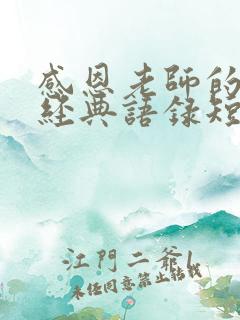 感恩老師的
經典語錄短
江門二爺
未经同意禁止转载